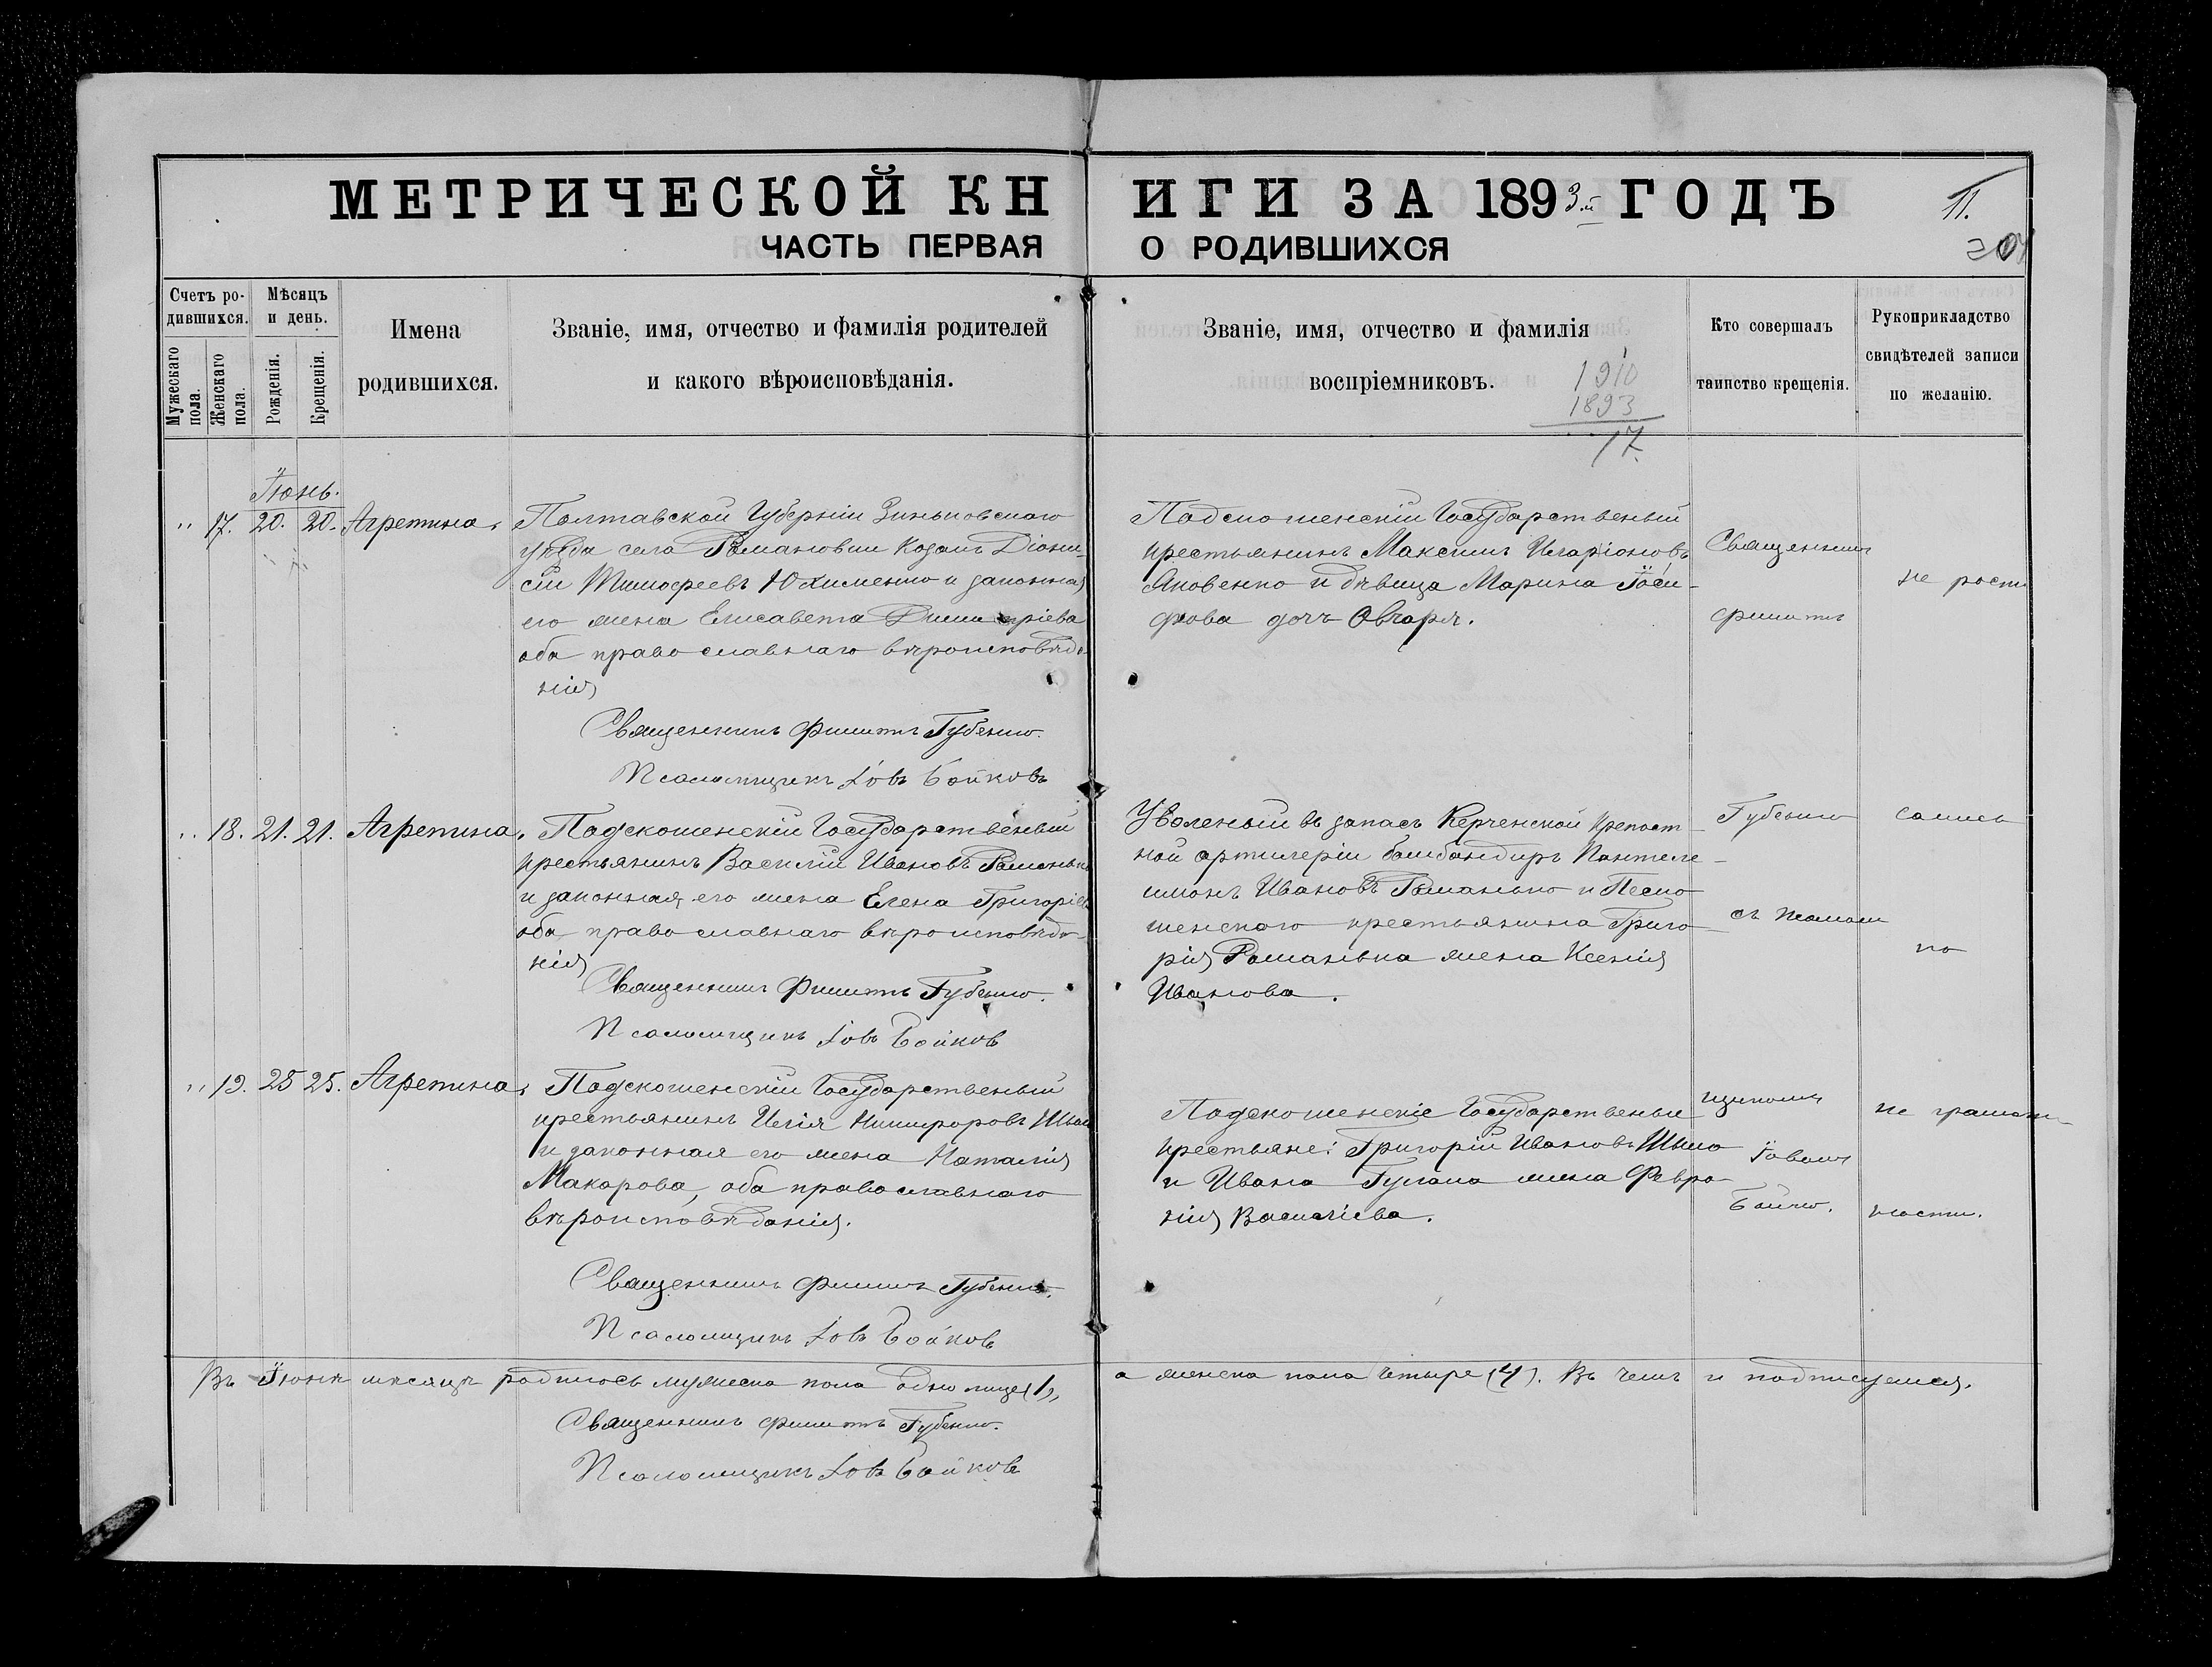 МЕТРИЧЕСКОЙ КН ИГИ ЗА 1893.й ГОДЪ
11.
ЧАСТЬ ПЕРВАЯ О РОДИВШИХСЯ
Счетъ ро-
дившихся.
Мужескаго пола.
Женскаго пола.
Мѣсяцъ
и день.
Рожденія.
Крещенія.
Имена
родившихся.
Званіе, имя, отчество и фамилія родителей
и какого вѣроисповѣданія.
Званіе, имя, отчество и фамилія
воспріемниковъ.
1910
1893
17.
Кто совершалъ
таинство крещенія.
Рукоприкладство
свидѣтелей записи
по желанію.
Іюнь.
" 17. 20. 20. Агрепина.
Полтавской Губерніи Зиньковскаго
уѣзда села Романовки Козакъ Діони-
сій Тимофеевъ Юхименко и законная
его жена Елисавета Димитріева
оба православнаго вѣроисповѣда-
нія
Священникъ Филиппъ Губенко.
Псаломщикъ Іовъ Бойковъ
Государственый
крестьянинъ Максимъ Иларіоновъ
Яковенко и дѣвица Марина Іоси-
фова дочъ Овчаря.
" 18. 21. 21. Агрепина.
Государственый
крестьянинъ Василій Ивановъ Романько
и законная его жена Елена Григоріев
оба православнаго вѣроисповѣда-
нія
Священникъ Филиппъ Губенко.
Псаломщикъ Іовъ Бойков
Уволеный въ запасъ Керченской крепост-
ной артилеріи бомбандиръ Пантеле-
имонъ Ивановъ Романько и
крестьянина Григо-
рія Романька жена Ксенія
Иванова.
" 19. 25 25. Агрепина.
Государственый
крестьянинъ Илія Никифоровъ
и законная его жена Наталія
Макарова, оба православнаго
вѣроисповѣданія.
Священникъ Филиппъ Губенко.
Псаломщикъ Іовъ Бойков
Государственые
крестьяне: Григорій Ивановъ
и Ивана жена Февро-
нія Василіева.
Священникъ
Филиппъ
Губенко
съ псалом
щикомъ
Іовомъ
не роспи
сались
по
не грамот-
ности.
Въ Іюнѣ мѣсяцѣ родилось мужеска пола одно лице (1), а женска пола четыре (4). Въ чемъ и подписуемся.
Священникъ Филиппъ Губенко.
Псаломщикъ Іовъ Бойковъ